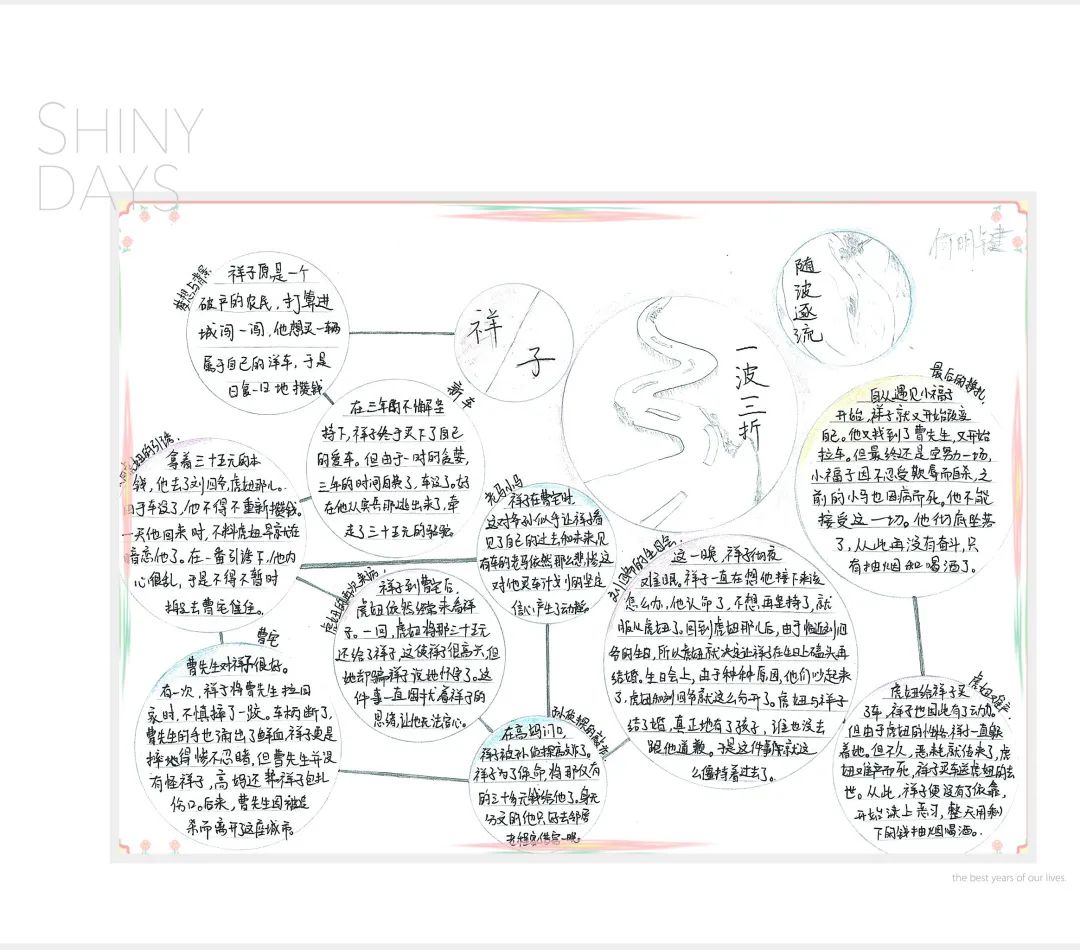 SHINY
DAYS
梦想与背景
祥子原是一个
破产的农民，打算进
城闯一闯，他想买一辆
属于自己的洋车，于是
日复一日地攒钱
祥
子
一波三折
随波逐流
新车
在三年的不懈坚
持下，祥子终于买下了自己
的爱车。但由于一时的贪婪，
三年的时间白费了，车没了。好
在他从兵营那逃出来了，牵
走了三十五元的骆驼。
虎妞的引诱.
拿着三十五元的本
钱，他去了刘四爷，虎妞那儿。
由于车没了，他不得不重新攒钱。
一天他回来时，不料虎妞早就在
暗恋他了。在一番引诱下，他内
心很乱，于是不得不暂时
搬去曹宅住住。
曹宅
曹先生对祥子很好。
有一次，祥子将曹先生拉回
家时，不慎摔了一跤。车柄断了，
曹先生的手也淌出了鲜血，祥子更是
摔地得惨不忍睹，但曹先生并没
有怪祥子，高妈还帮祥子包扎
伤口。后来，曹先生因被追
杀而离开了这座城市。
虎妞的再次来访.
祥子到曹宅后，
虎妞依然继续来看祥
子。一回，虎妞将那三十五元
还给了祥子，这使祥子很高兴，但
她却骗祥子说她怀孕了。这
件事一直困扰着祥子的
思绪，让他无法定心。
老马小马
祥子在曹宅时，
这对爷孙似乎让祥子看
见了自己的过去和未来，见
有车的老马依然那么悲惨，这
对他买车计划的坚定
信心产生了动摇。
孙侦探的敲诈
在高妈门口，
祥子被孙侦探敲诈了。
祥子为了保命，将那仅有
的三十多元钱给他了。身无
分文的他只好去邻居
老程家借宿一晚。
刘四爷的生日会.
这一晚，祥子彻夜
难眠。祥子一直在想他接下来该
怎么办，他认命了，不想再坚持了，就
服从虎妞了。回到虎妞那儿后，由于临近刘四
爷的生日，所以虎妞就决定让祥子在生日上磕头再
结婚。生日会上，由于种种原因，他们吵起来
了，虎妞和刘四爷就这么分开了。虎妞与祥子
结了婚，真正地有了孩子，谁也没去
跟他道歉。于是这件事情就这
么僵持着过去了。
虎妞难产.
虎妞给祥子买
了车，祥子也因此有了动力。
但不久，恶耗就传来了，虎
妞难产而死，祥子买车送虎妞的去
世。从此，祥子便没有了依靠，
开始染上恶习，整天用剩
下的钱抽烟喝酒。
最后的挣扎.
自从遇见小福子
开始，祥子就又开始改变
自己。他又找到了曹先生，又开始
拉车。但最终还是空努力一场，
小福子因不忍受欺辱而自杀，之
前的小马也因病而死。他不能
接受这一切。他彻底坠落
了，从此再没有奋斗，只
有抽烟和喝酒了。
the best years of our lives.